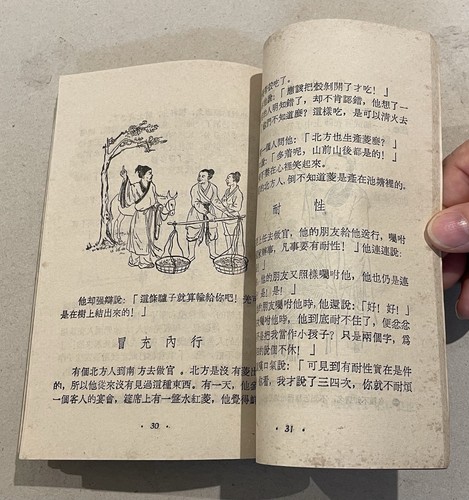 他却强辯說：「這條驢子就算輸給你吧！
是在樹上結出來的！」
冒充內行
有個北方人到南方去做官。北方是沒有菱
的，所以他從來沒有見過這種東西。有一天，他
一個客人的宴會，筵席上有一盤水紅菱，他覺得
· 30 ·
吃了。
說：「應該把殼剝開了才吃！」
人明知錯了，却不肯認錯，他想了一
們不知道麽？這樣吃，是可以清火去
人問他：「北方也生產菱麽？」
說：「多着呢，山前山後都是的！」
在心裡笑起來。
的北方人，倒不知道菱是產在池塘裡的。
耐性
任去做官，他的朋友給他送行，囑咐
辦事，凡事要有耐性！」他連連說：
！」
他的朋友又照樣囑咐他，他也仍是連
是！」
囑咐他時，他還說：「好！好！」
囑咐他時，他到底耐不住了，便忿忿
是把我當作小孩子？只是兩個字，為
的說個不休！」
口氣說：「可見到有耐性實在是件
看，我才說了三四次，你就不耐煩
· 31 ·